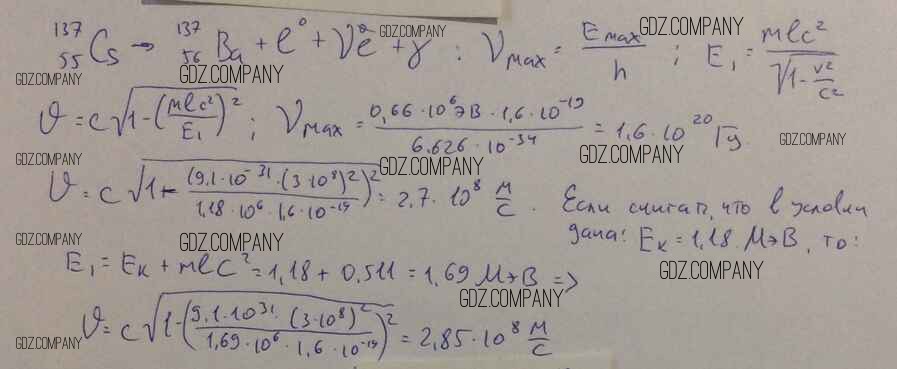 ¹³⁷₅₅Cs → ¹³⁷₅₆Ba + e⁰ + ν⁰e + γ ; νmax = Emax/h ; E₁ = mec²/√(1-v²/c²)
GDZ.COMPANY GDZ.COMPANY
GDZ.COMPANY GDZ.COMPANY
υ = c√(1-(mec²/E₁)²) ; νmax = 0,66·10⁶эВ·1,6·10⁻¹⁹/6.626·10⁻³⁴ = 1,6·10²⁰ Гц.
GDZ.COMPANY GDZ.COMPANY GDZ.COMPANY GDZ.COMPANY
υ = c√(1-((9,1·10⁻³¹·(3·10⁸)²)/(1,18·10⁶·1,6·10⁻¹⁹))²) = 2,7·10⁸ м/с. Если считать, что в условии
дана: Eк = 1,18 МэВ, то:
GDZ.COMPANY GDZ.COMPANY
E₁ = Eк + mec² = 1,18 + 0,511 = 1,69 МэВ =>
GDZ.COMPANY GDZ.COMPANY
υ = c√(1-((9,1·10³¹·(3·10⁸)²)/(1,69·10⁶·1,6·10⁻¹⁹))²) = 2,85·10⁸ м/с
GDZ.COMPANY GDZ.COMPANY GDZ.COMPANY